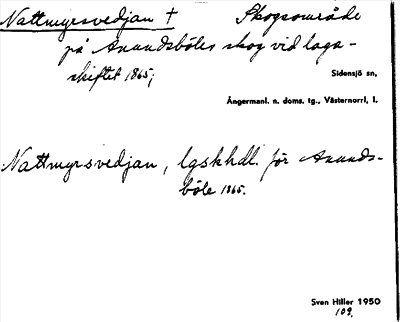 Nattmyrsvedjan † Skogsområde
på Anundsböles skog vid laga-
skiftet 1865;
Sidensjö sn,
Ångermanl. n. doms. tg., Västernorrl. l.
Nattmyrsvedjan, lgskhdl. för Anunds-
böle 1865.
Sven Hiller 1950
109.